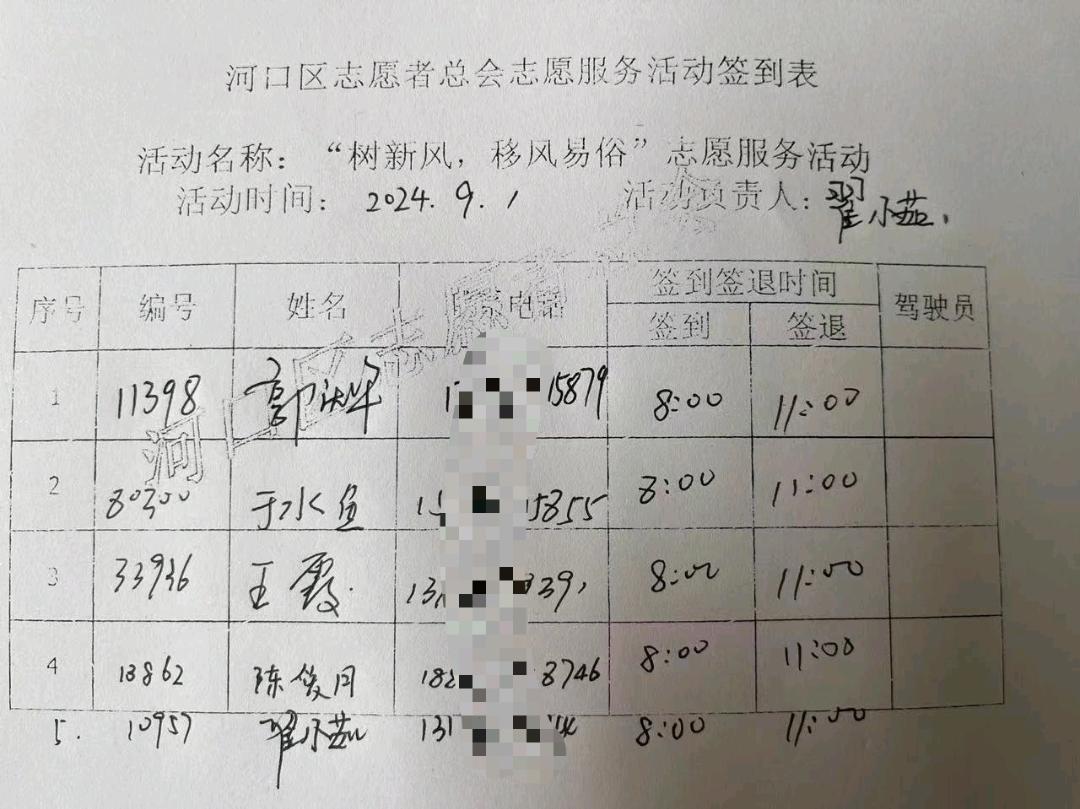 河口区志愿者总会志愿服务活动签到表
活动名称：“树新风，移风易俗”志愿服务活动
活动时间： 2024.9.1 活动负责人：翟小茹.
序号 编号 姓名 联系电话 签到签退时间 驾驶员
签到 签退
1 11398 郭 15879 8:00 11:00
2 80300 于水鱼 15855 8:00 11:00
3 33936 王霞 8:00 11:00
4 13862 陈俊月 182 8746 8:00 11:00
5. 10957 翟小茹 131 8:00 11:00
河口区志愿者总会